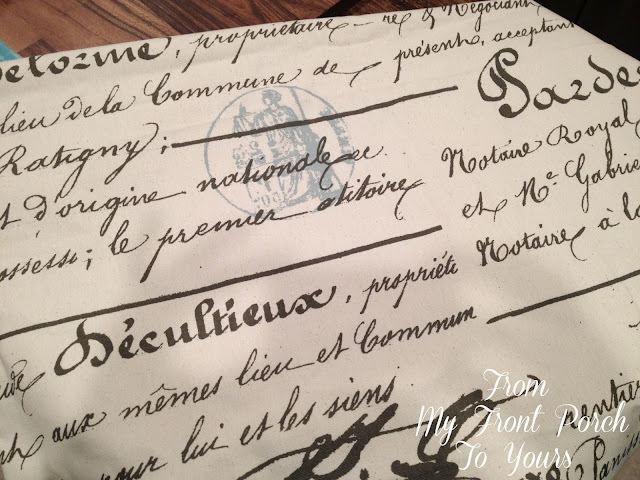 Delorme, propriétaire
lieu de la Commune de
Ratigny;
et d'origine nationale
le premier
Décultieux, propriéti
aux mêmes lieu et Commun
pour lui et les siens
& Négociant
présent, acceptant
Parde
Notaire Royal
et Me. Gabrie
Notaire à la
From
My Front Porch
To Yours